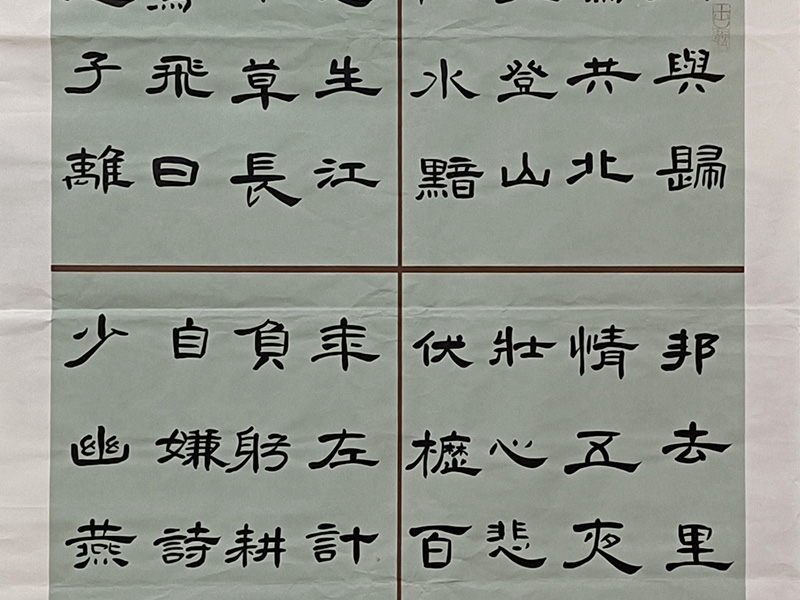 與歸
共北
登山
水黯
生江
草長
飛曰
子離
邦去里
情五夜
壯心悲
伏櫪百
年左計
負躬耕
自嫌詩
少幽燕